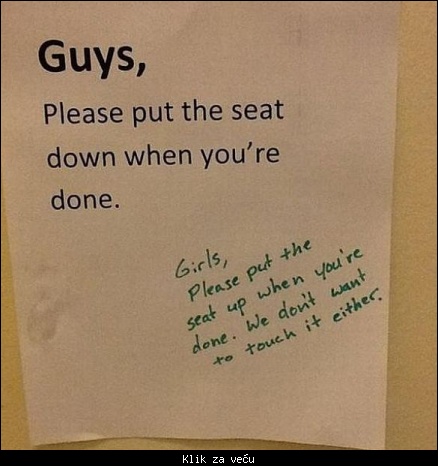 Guys,
Please put the seat
down when you're
done.
Girls,
Please put the
seat up when you're
done. We don't want
to touch it either.
Klik za veču